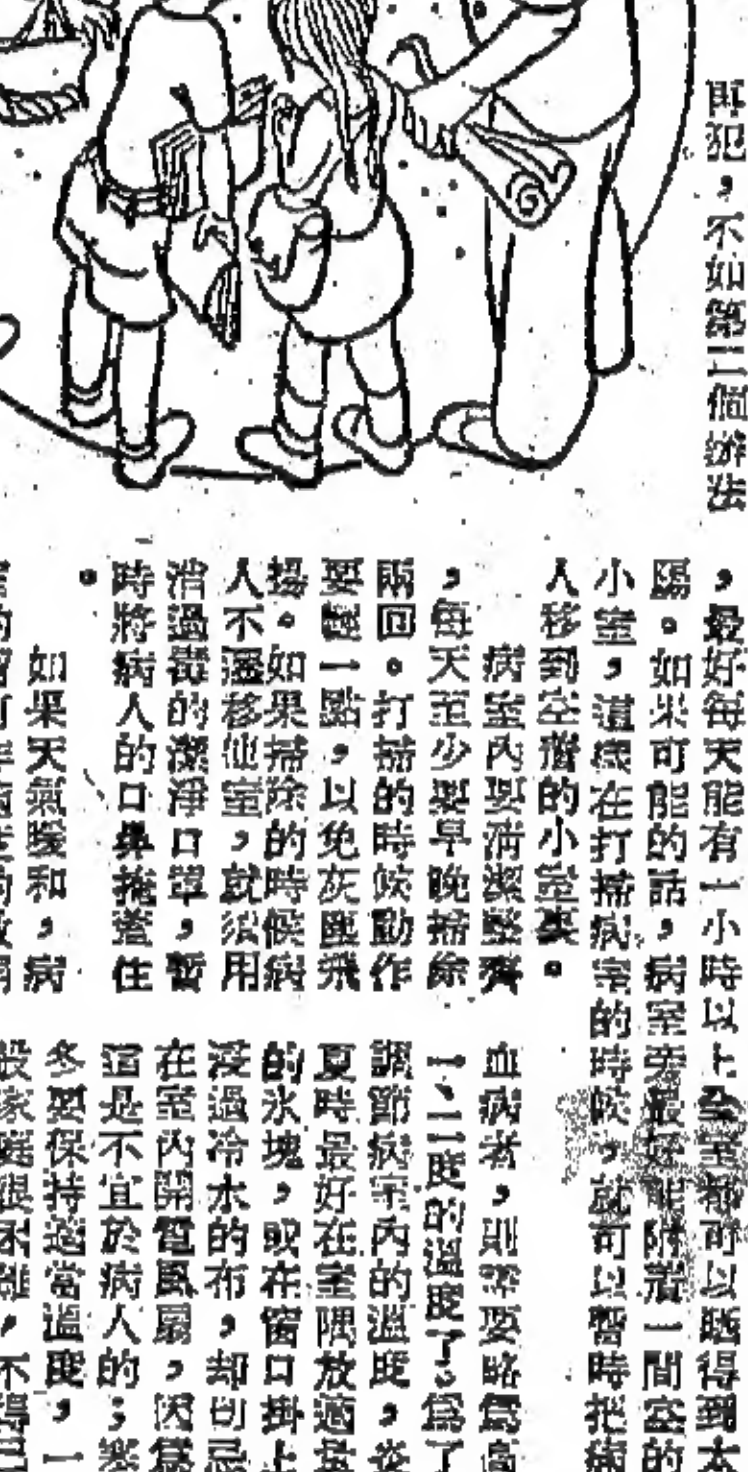 再犯，不如第二個辦法
，最好每天能有一小時以上全室都可以晒得到太
陽。如果可能的話，病室旁最好能附着一間空的
小室，這樣在打掃病室的時候，就可以暫時把病
人移到空着的小室裏。
病室內要清潔整齊
，每天至少要早晚掃除
兩回。打掃的時候動作
要輕一點，以免灰塵飛
揚。如果掃除的時候病
人不遷移他室，就須用
消過毒的潔淨口罩，暫
時將病人的口鼻掩蓋住
。
如果天氣暖和，病
血病者，則需要略爲高
一、二度的溫度了。爲了
調節病室內的溫度，炎
夏時最好在室隅放適量
的冰塊，或在窗口掛上
浸過冷水的布，却切忌
在室內開電風扇，因爲
這是不宜於病人的；寒
冬要保持適當溫度，一
般家庭很困難，不得已